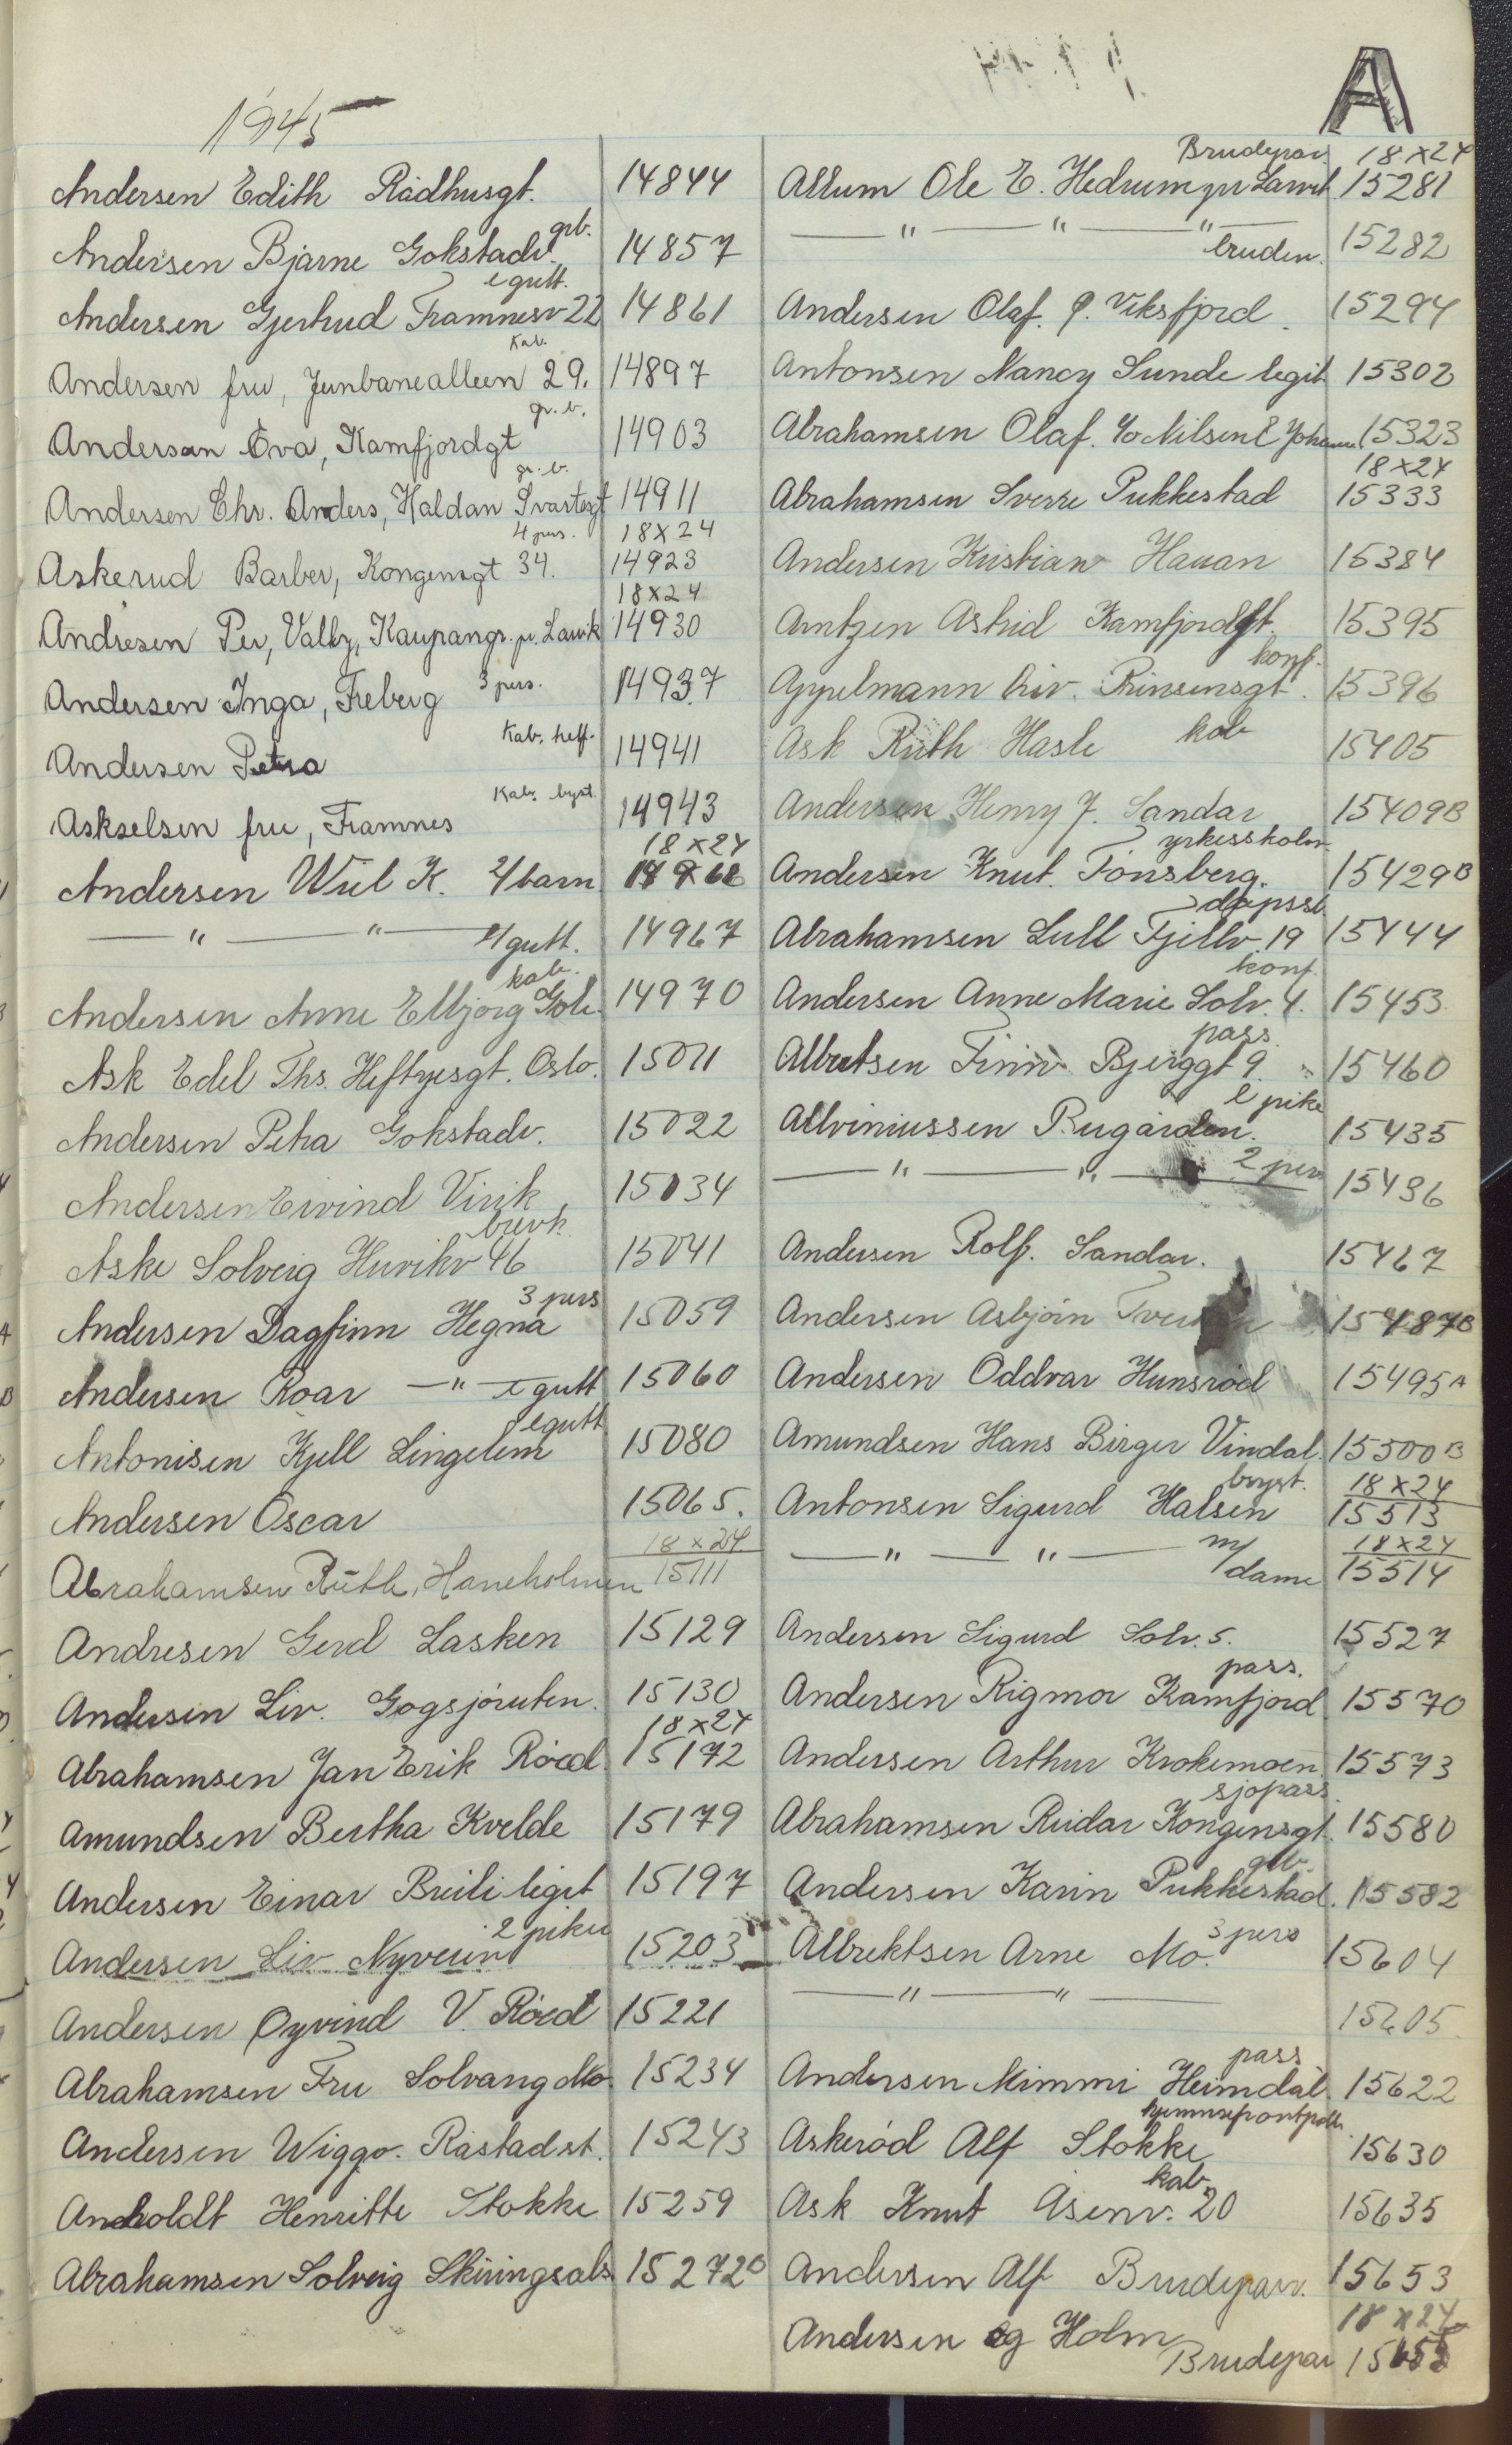 A
1945
Andersen Edith Rådhusgt. 14844
Andersen Bjarne Gokstadv. grb. 14857
Andersen Gjertrud Framnesv 22 1 gutt. 14861
Andersen fru, Jernbanealleen 29. Kab. 14897
Andersen Eva, Kamfjordgt gr. b. 14903
Andersen Chr. Anders, Haldan Svartesgt gr. b. 14911
Askerud Barber, Kongensgt 34. 4 pers. 18x24 14923
Andresen Per, Valby, Kaupangr. pr. Larvik 18x24 14930
Andersen Inga, Freberg 3 pers. 14937
Andersen Petra Kab. helf. 14941
Askselsen fru, Framnes Kab. byst. 14943
Andersen Wiel K. 2/barn 18x24 14968
— " — " — 1/gutt. 14967
Andersen Anne Elbjørg Gok. kab. 14970
Ask Edel Ths. Heftyesgt. Oslo. 15011
Andersen Petra Gokstadv. 15022
Andersen Eivind Virik 15034
Aske Solveig Huvikv 46 brvk. 15041
Andersen Dagfinn Hegna 3 pers 15059
Andersen Roar — " — 1 gutt 15060
Antonisen Kjell Lingelem 1 gutt 15080
Andersen Oscar 15065.
Abrahamsen Ruth, Haneholmen 18x24 15111
Andresen Gerd Lasken 15129
Andersen Liv. Gogsjøruten. 15130
Abrahamsen Jan Erik Röed 18x24 15172
Amundsen Bertha Kvelde 15179
Andersen Einar Breili legit 15197
Andersen Liv Nyveien 2 piker 15203
Andersen Øyvind V. Röed 15221
Abrahamsen Fru Solvang Mo. 15234
Andersen Wiggo. Råstad st. 15243
Anholdt Henritte Stokke 15259
Abrahamsen Solveig Skiringsals 15272B
Allum Ole E. Hedrum pr Larvik Brudepar 18x24 15281
— " — " — " bruden. 15282
Andersen Olaf. P. Viksfjord 15294
Antonsen Nancy Sunde legit 15302
Abrahamsen Olaf. c/o Nilsen E Johann. 15323
Abrahamsen Sverre Pukkestad 18x24 15333
Andersen Kristian Hauan 15384
Arntzen Astrid Kamfjordgt. 15395
Appelmann Liv. Prinsensgt. konf. 15396
Ask Ruth Hasle kab 15405
Andersen Henry J. Sandar 15409B
Andersen Knut. Tönsberg. yrkesskolen 15429B
Abrahamsen Lull Fjellv. 19 dåpssl. 15444
Andersen Anne Marie Solv. 4. konf. 15453
Albretsen Finn Bjerggt 9. pass. 15460
Allviniussen Bugården. 1 pike 15435
— " — " — 2 pers 15436
Andersen Rolf. Sandar. 15467
Andersen Asbjörn 15487B
Andersen Oddvar Hunsröd 15495A
Amundsen Hans Birger Vindal. 15500B
Antonsen Sigurd Halsen bryst. 18x24 15513
— " — " — m/dame 18x24 15514
Andersen Sigurd Solv. 5. 15527
Andersen Rigmor Kamfjord pass. 15570
Andersen Arthur Krokemoen. 15573
Abrahamsen Reidar Kongensgt. sjöpass. 15580
Andersen Karin Pukkestad. grb. 15582
Albrektsen Arne Mo. 3 pers 15604
— " — " — 15605.
Andersen Mimmi Heimdal pass 15622
Askeröd Alf Stokke 15630
Ask Knut Åsenv. 20 kab. 15635
Andersen Alf Brudepar. 15653
Andersen og Holm Brudepar 18x24 15652